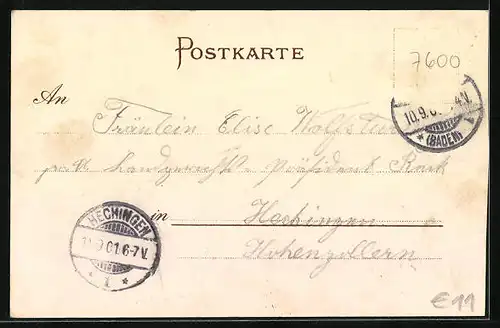 POSTKARTE
7600
An
Fräulein Elise
10.9.0
(BADEN)
Landgerichts Präsident
in Hechingen
Hohenzollern
HECHINGEN
9 01.6-7V.
1
€11